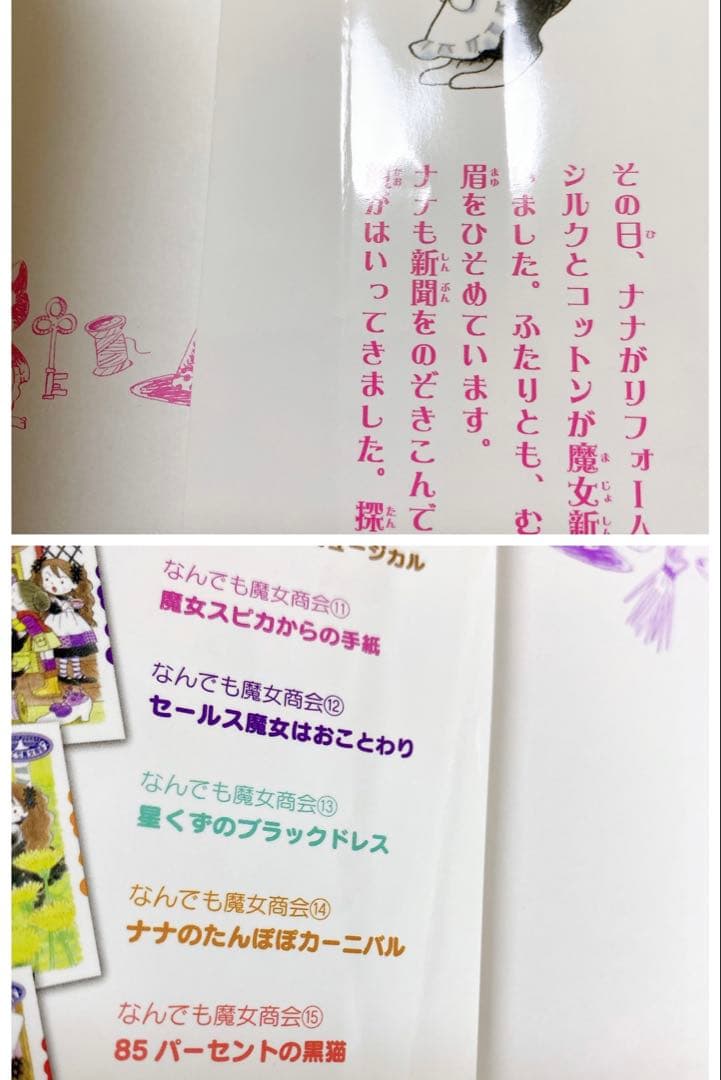 その日、ナナがリフォーム
シルクとコットンが魔女新
ました。ふたりとも、む
眉をひそめています。
ナナも新聞をのぞきこんで
がはいってきました。探
ュージカル
なんでも魔女商会⑪
魔女スピカからの手紙
なんでも魔女商会⑫
セールス魔女はおことわり
なんでも魔女商会⑬
星くずのブラックドレス
なんでも魔女商会⑭
ナナのたんぽぽカーニバル
なんでも魔女商会⑮
85パーセントの黒猫